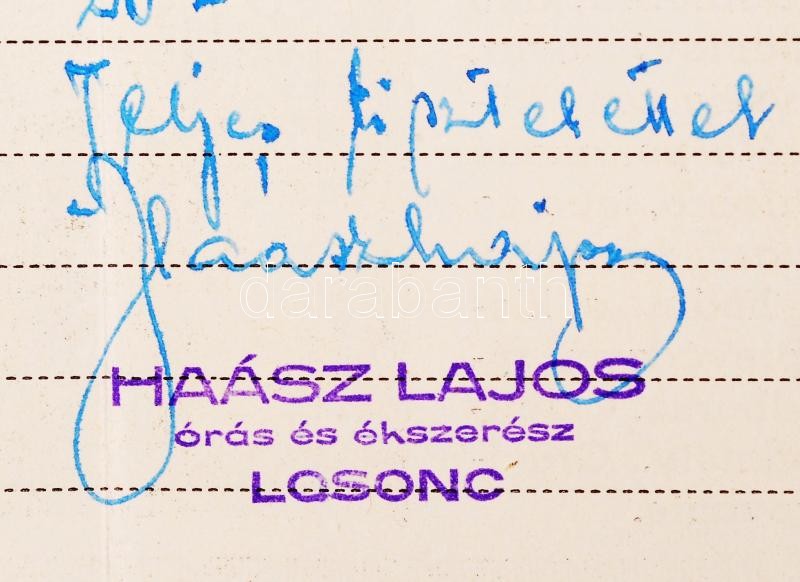 Teljes tisztelettel
Haász Lajos
darabanth
HAÁSZ LAJOS
órás és ékszerész
LOSONC